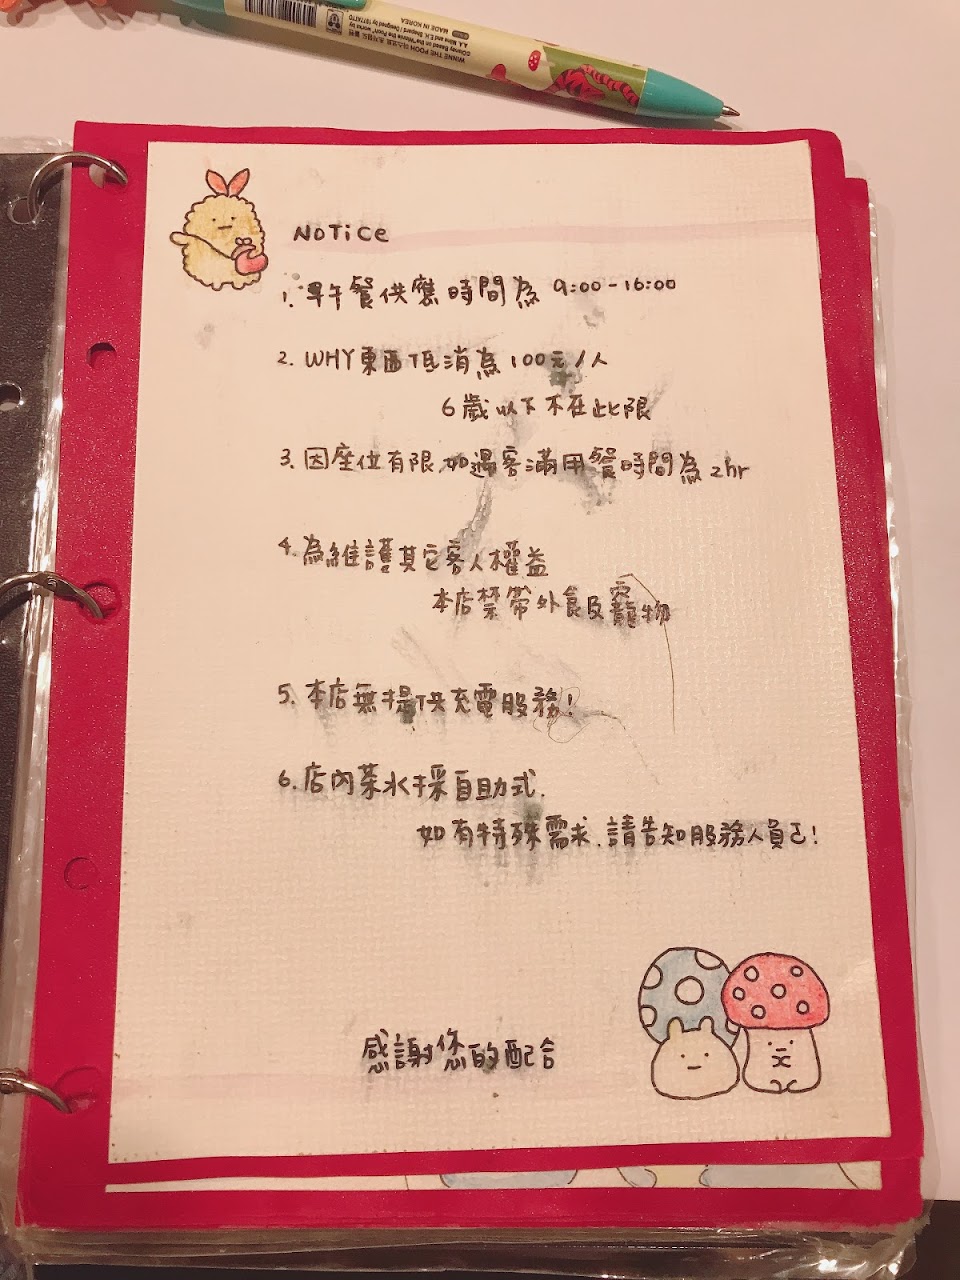 WINNE THE POOH
MADE IN KOREA
NOTICE
1. 早午餐供應時間為 9:00-16:00
2. WHY東區低消為100元/人
6歲以下不在此限
3. 因座位有限,如遇客滿用餐時間為2hr
4. 為維護其它客人權益
本店禁帶外食及寵物
5. 本店無提供充電服務!
6. 店內茶水採自助式.
如有特殊需求.請告知服務人員己!
感謝您的配合